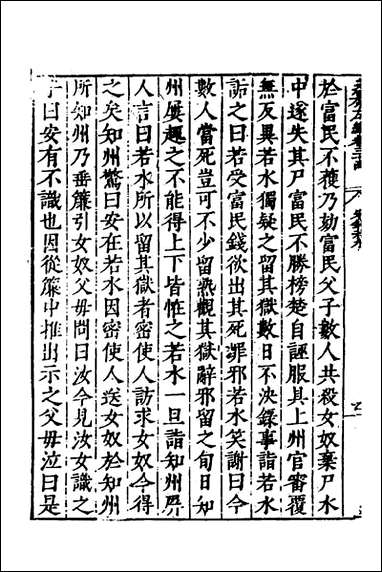 於富民不獲乃劾富民父子數人共殺女奴棄尸水
中遂失其尸富民不勝榜楚自誣服具上州官審覆
無反異若水獨疑之留其獄數日不決錄事詣若水
詬之曰若受富民錢欲出其死罪邪若水笑謝曰今
數人當死豈可不少留熟觀其獄辭邪留之旬日知
州屢趣之不能得上下皆怪之若水一旦詣知州屏
人言曰若水所以留其獄者密使人訪求女奴今得
之矣知州驚曰安在若水因密使人送女奴於知州
所知州乃垂簾引女奴父母問曰汝今見汝女識之
乎曰安有不識也因從簾中推出示之父母泣曰是